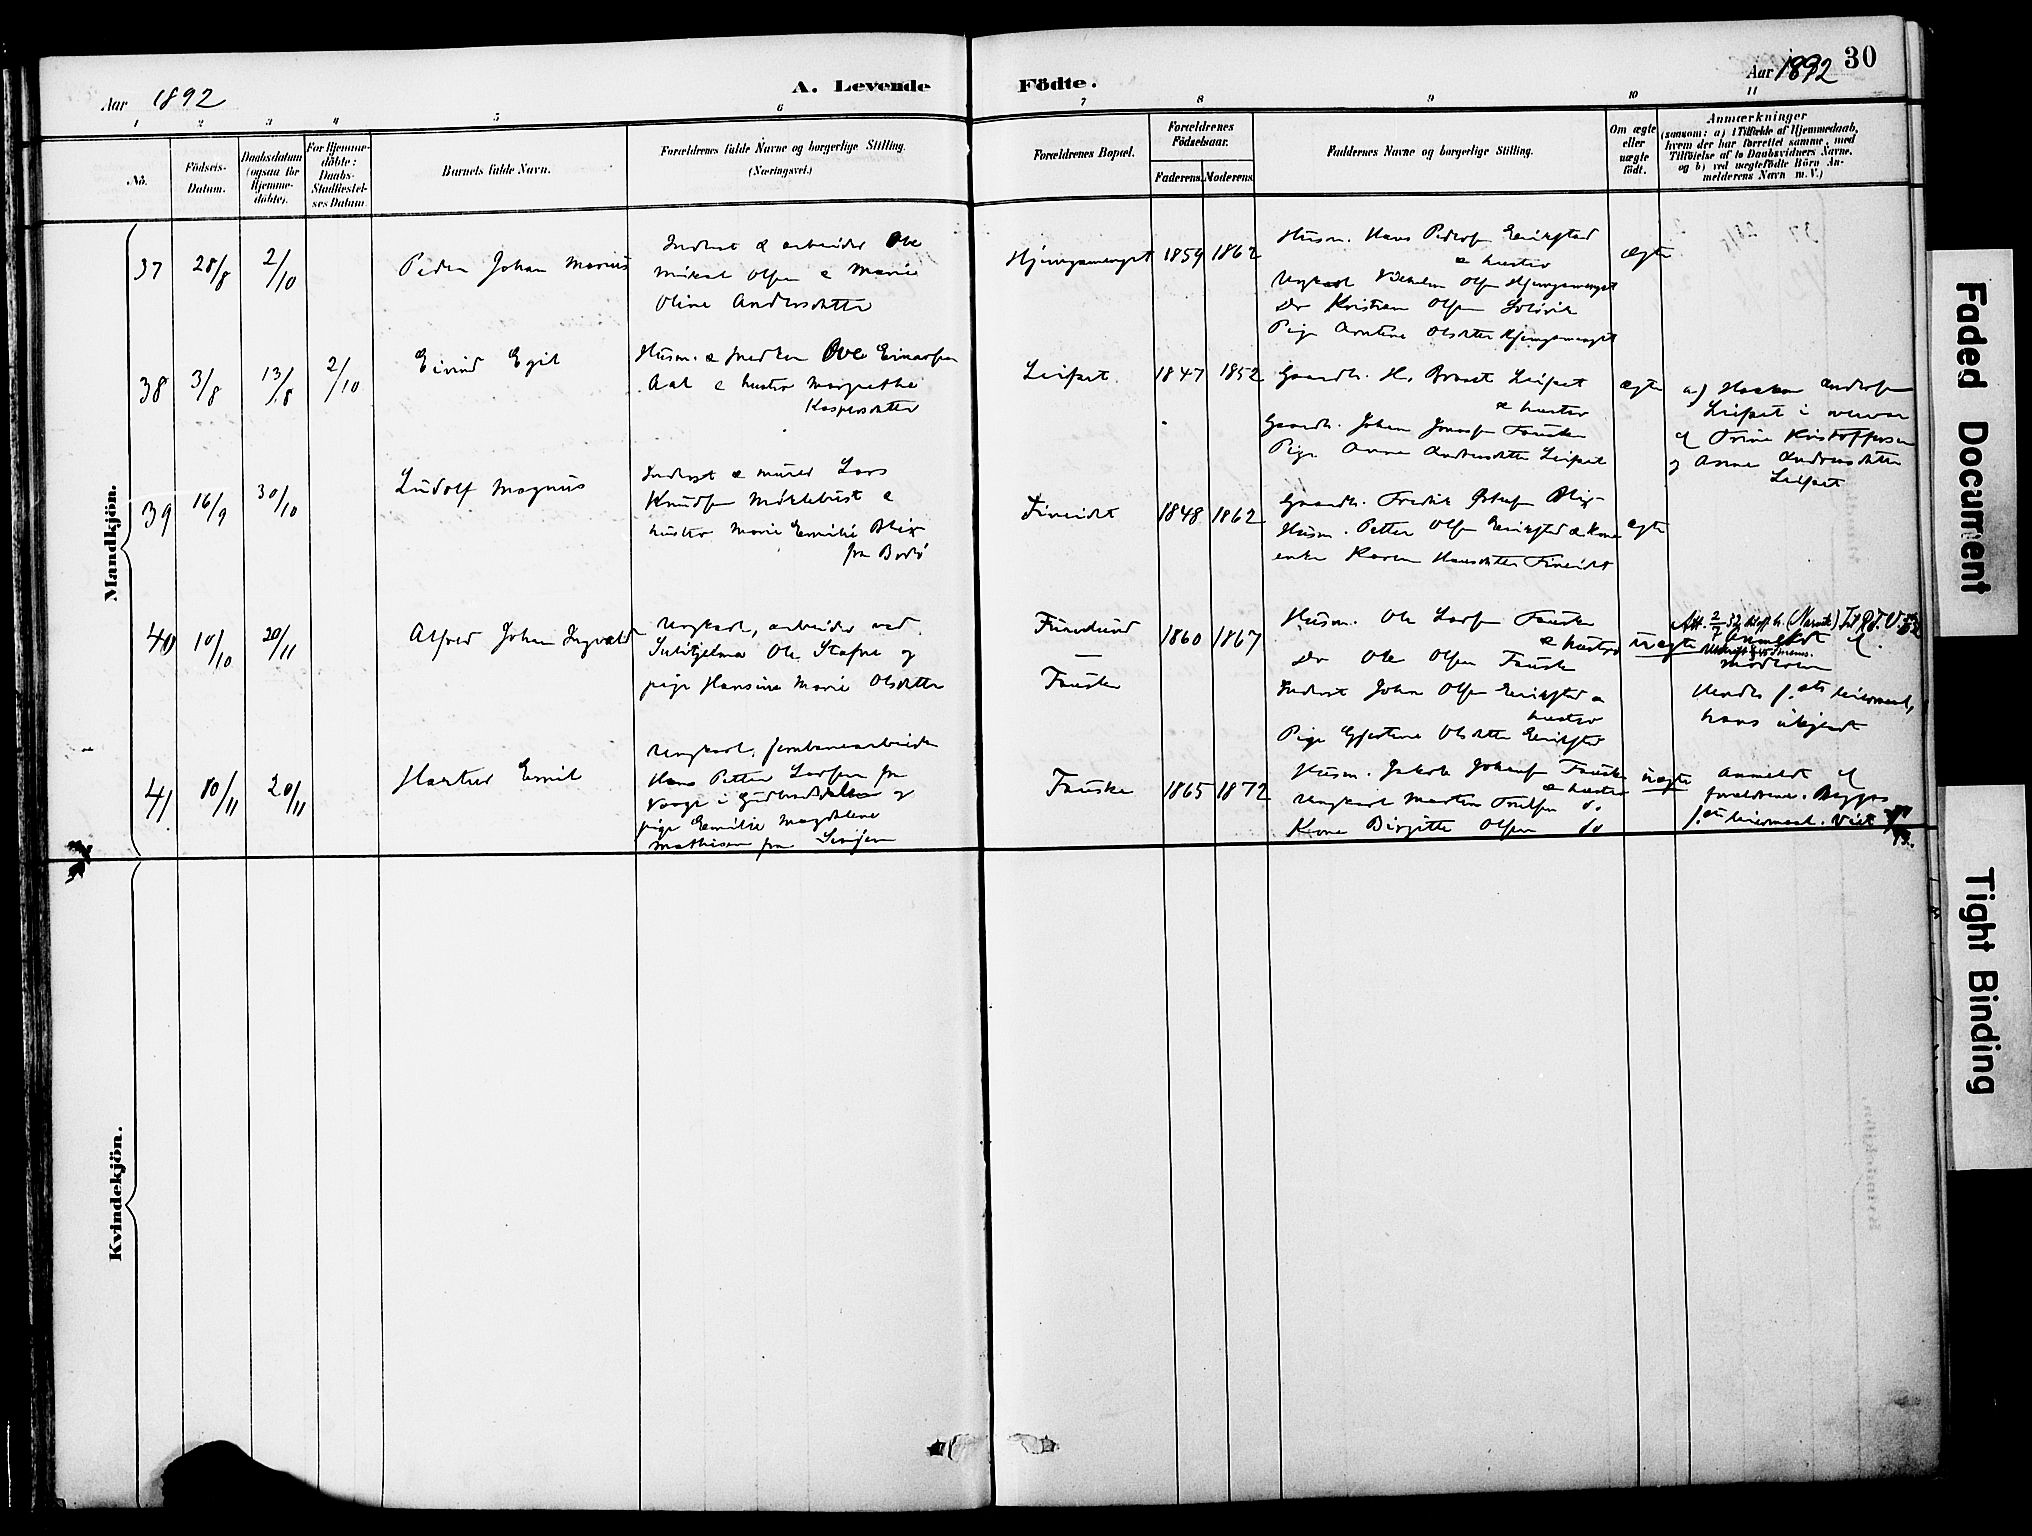 30
Aar 1892
A. Levende Födte.
Aar 1892
1 2 3 4 5 6 7 8 9 10 11
No.
Födsels-Datum.
Daabsdatum (ogsaa for Hjemme-döbte).
For Hjemme-döbte: Daabs-Stadfæstel-ses Datum
Barnets fulde Navn.
Forældrenes fulde Navne og borgerlige Stilling. (Næringsvei.)
Forældrenes Bopæl.
Forældrenes Födselsaar.
Faderens. Moderens.
Faddernes Navne og borgerlige Stilling.
Om ægte eller uægte födt.
Anmærkninger
(saasom: a) i Tilfælde af Hjemmedaab, hvem der har forrettet samme, med Tilföielse af to Daabsvidners Navne. og b) ved uægtefödte Börn An-melderens Navn m. V.)
Mandkjön.
37 28/8 2/10
Peder Johan Marius
Inderst & arbeider Ole
Mikal Olsen & Marie
Oline Andersdatter
Hjemgamenget 1859 1862
Husm. Hans Pedersen Erikstad
& hustru
Ungkarl Vilhelm Olsen
Do Kristian Olsen
Pige Arntine Olsdatter
ægte
38 3/8 13/8 2/10
Eivind Egil
Husm. & Ove Einarsen
Aal & hustru Margrethe
Kaspersdatter
Leifset 1847 1852
Gaardb. H. Leifset
& hustru
Gaardb. Johan Jonassen Fauske
Pige Anna Andersdatter Leifset
ægte
a) Haakon Andersen
Leifset i overvær
af Trine Kristoffersen
og Anna Andersdatter
Leifset
39 16/9 30/10
Ludolf Magnus
Inderst & murer Lars
Knudsen Miklebust &
hustru Marie Emilie Blix
fra Bodö
Fineidet 1848 1862
Gaardb. Fredrik Blix
Husm. Petter Olsen Erikstad & kone
enke Karen Hansdatter Fineidet
ægte
40 10/10 20/11
Alfred Johan Ingvald
Ungkarl, arbeider ved
Sulitjelma Ole Stafne og
pige Hansine Marie Olsdatter
Furulund
Fauske
1860 1867
Husm. Ole Larsen Fauske
& hustru
Do Ole Olsen Fauske
Inderst Johan Olsen Erikstad &
hustru
Pige Olsdatter Erikstad
uægte
Anmeldt af
moderen
Hendes 1ste leiermaal,
hans ukjendt
41 10/11 20/11
Emil
Ungkarl, jernbanearbeider
Hans Petter Larsen fra
Vaage i Gudbrandsdalen og
pige Emilie Magdalene
Mathisen fra Senjen
Fauske 1865 1872
Husm. Jakob Johansen Fauske
& hustru
Ungkarl Martin Olsen do
Kone Birgitte Olsen do
uægte
Anmeldt af
forældrene. Begges
1ste leiermaal.
Kvindekjön.
Faded Document
Tight Binding